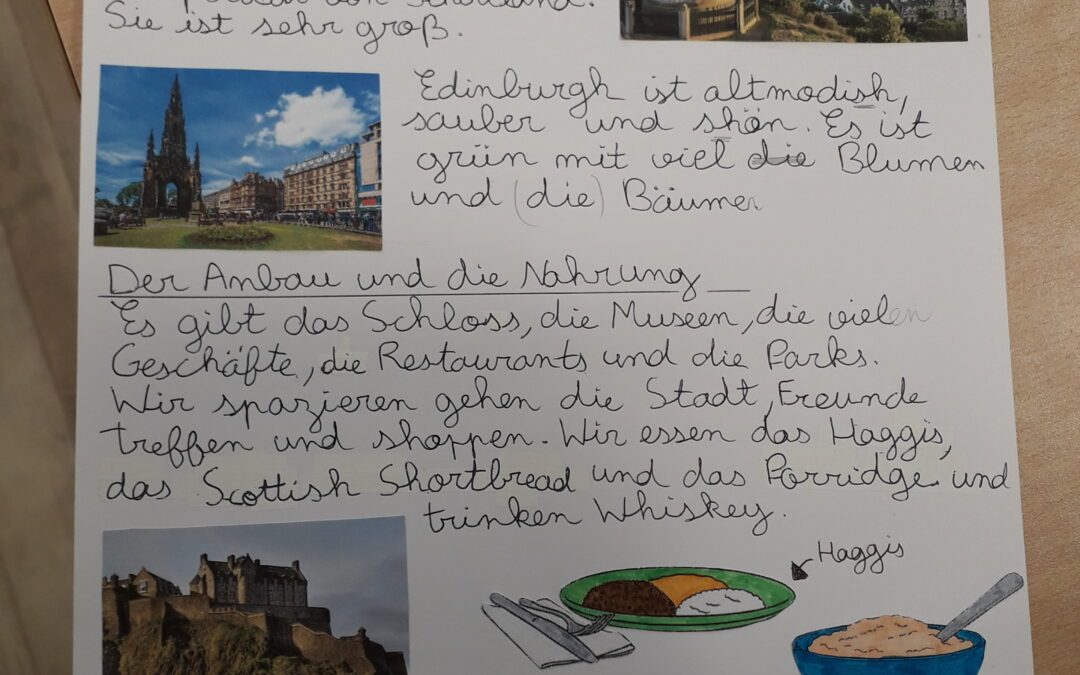 von Schottland.
Sie ist sehr groß.
Edinburgh ist altmodish,
sauber und shön. Es ist
grün mit viel die Blumen
und (die) Bäumer
Der Anbau und die Nahrung
Es gibt das Schloss, die Museen, die vielen
Geschäfte, die Restaurants und die Parks.
Wir spazieren gehen die Stadt, Freunde
treffen und shoppen. Wir essen das Haggis,
das Scottish Shortbread und das Porridge und
trinken Whiskey.
Haggis